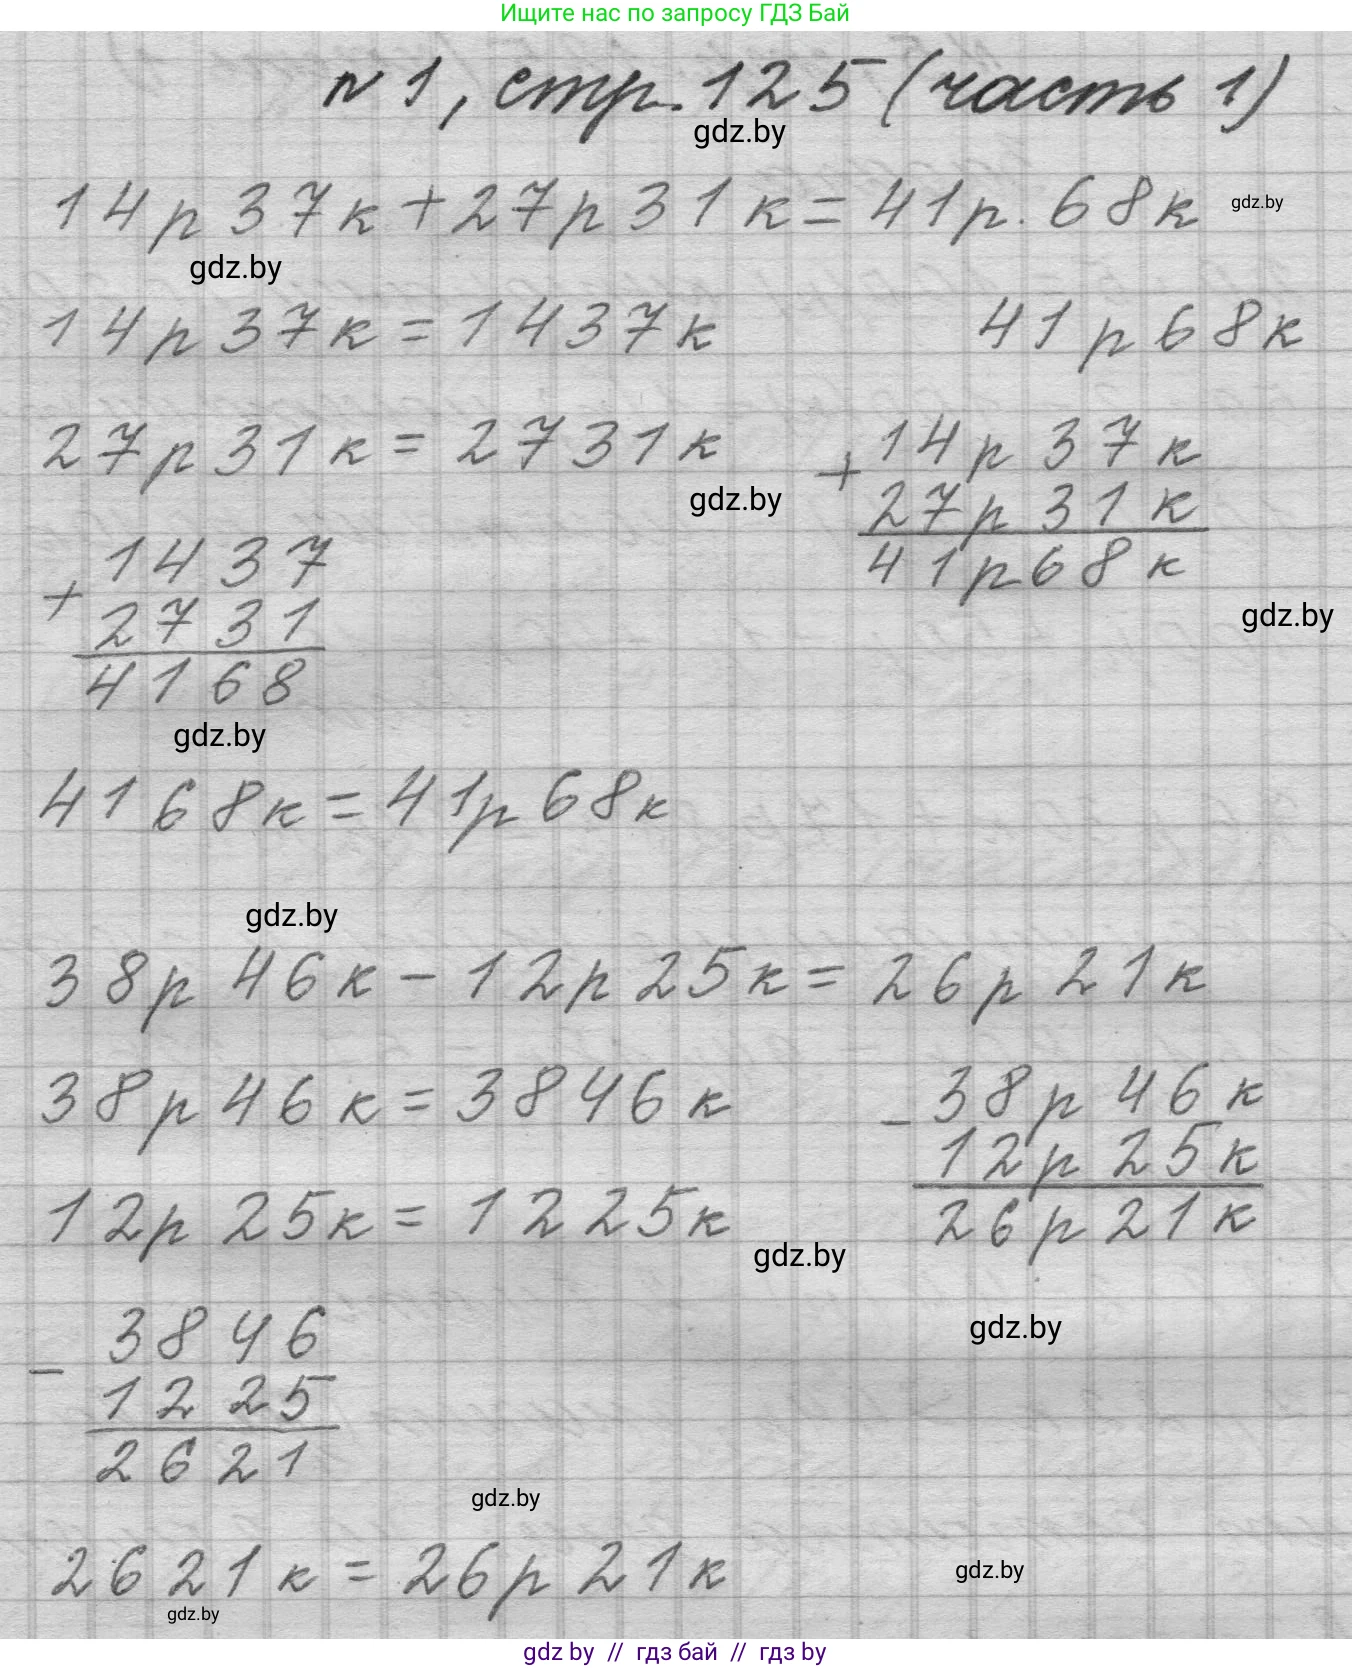 Ищите нас по запросу ГДЗ Бай
n 1, стр. 125 (часть 1)
gdz.by
14р 37к + 27р 31к = 41р. 68к
gdz.by
gdz.by
14р 37к = 1437к
41р 68к
27р 31к = 2731к
+ 14р 37к
gdz.by
27р 31к
41р 68к
+ 1437
2731
gdz.by
4168
gdz.by
4168к = 41р 68к
gdz.by
38р 46к - 12р 25к = 26р 21к
38р 46к = 3846к
- 38р 46к
12р 25к
12р 25к = 1225к
26р 21к
gdz.by
gdz.by
- 3846
1225
2621
gdz.by
2621к = 26р 21к
gdz.by
gdz.by
gdz by // гдз бай // гдз by